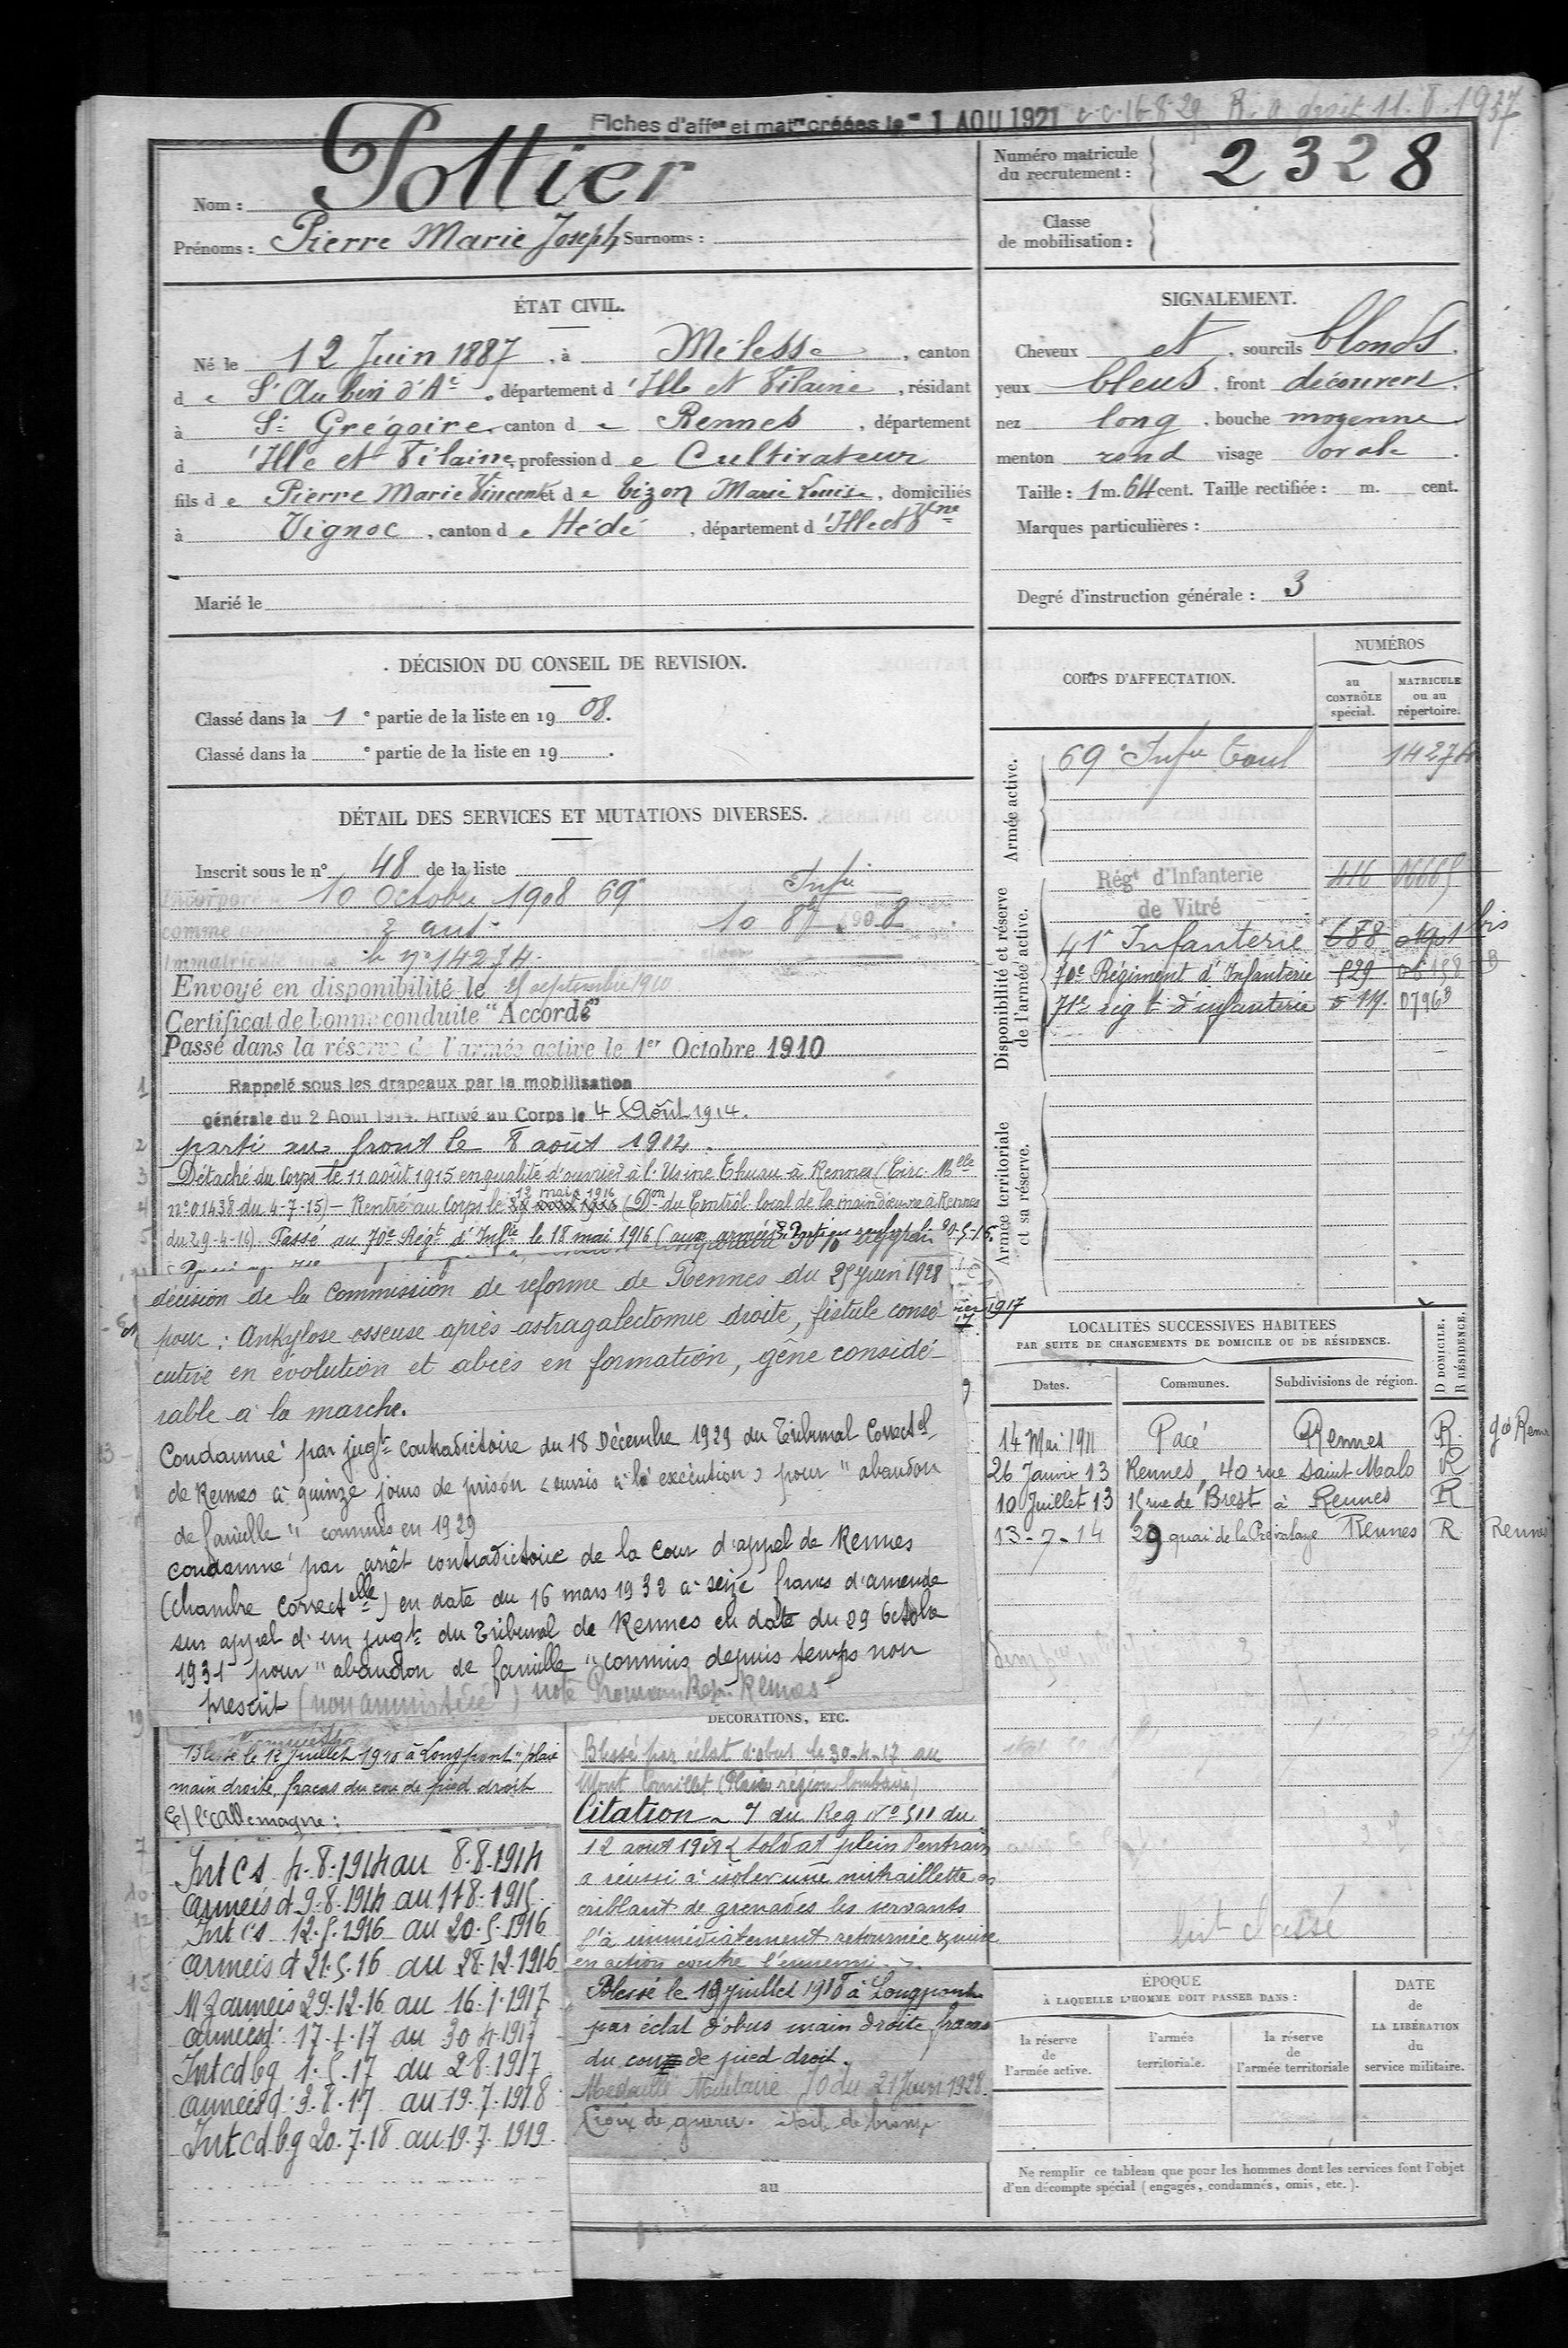 Fiches d'affon et matle créées le 1 AOU 1921 c.c. 16-8-29 R. a droit 11.8.1937
Nom : Pottier
Prénoms : Pierre Marie Joseph Surnoms :
Numéro matricule du recrutement : 2328
Classe de mobilisation :
ÉTAT CIVIL.
Né le 12 Juin 1887, à Melesse, canton
de St Aubin d'Ac, département d'Ille et Vilaine, résidant
à St Grégoire, canton de Rennes, département
d'Ille et Vilaine, profession de Cultivateur
fils de Pierre Marie Vincent et de Tizon Marie Louise, domiciliés
à Vignoc, canton de Hédé, département d'Ille et Vne
Marié le
SIGNALEMENT.
Cheveux et, sourcils blonds.
yeux bleus, front découvert.
nez long, bouche moyenne
menton rond visage ovale.
Taille : 1 m. 64 cent. Taille rectifiée : m. cent.
Marques particulières :
Degré d'instruction générale : 3
DÉCISION DU CONSEIL DE REVISION.
Classé dans la 1e partie de la liste en 1908.
Classé dans la e partie de la liste en 19 .
DÉTAIL DES SERVICES ET MUTATIONS DIVERSES.
Inscrit sous le n° 48 de la liste
Incorporé 10 Octobre 1908 69e Infie
comme 2 ans 10 8bre 1908
Immatriculé le n° 14274.
Envoyé en disponibilité le 25 septembre 1910
Certificat de bonne conduite "Accordé"
Passé dans la réserve de l'armée active le 1er Octobre 1910
1 Rappelé sous les drapeaux par la mobilisation
générale du 2 Aout 1914. Arrivé au Corps le 4 Août 1914.
2 parti au front le 8 août 1914.
3 Détaché du Corps le 11 août 1915 en qualité d'ouvrier à l'Usine Thuau à Rennes (Circ. Mlle
4 n° 01438 du 4-7-15) - Rentré au Corps le 12 mai 1916 (Don du Contrôl. local de la main d'œuvre à Rennes
5 du 29-4-16). Passé au 70e Régt d'Infie le 18 mai 1916 (aux armées). Parti en renfort le 20-5-16.
décision de la Commission de reforme de Rennes du 25 juin 1928
pour : Ankylose osseuse après astragalectomie droite, fistule consé-
cutive en évolution et abcès en formation, gêne considé-
rable à la marche.
Condamné par jugt contradictoire du 18 Décembre 1929 du Tribunal Correctel
de Rennes à quinze jours de prison (sursis à l'exécution) pour "abandon
de famille" commis en 1929
condamné par arrêt contradictoire de la Cour d'appel de Rennes
(Chambre Correctelle) en date du 16 mars 1932 à seize francs d'amende
sur appel d'un jugt du Tribunal de Rennes en date du 29 Octobre
1931 pour "abandon de famille" commis depuis temps non
prescrit (non amnistiée) note Procureur Rép. Rennes
CORPS D'AFFECTATION.
NUMÉROS
au CONTRÔLE spécial.
MATRICULE ou au répertoire.
Armée active.
69e Infie Toul 14274
Disponibilité et réserve de l'armée active.
Régt d'Infanterie de Vitré 416 06665
41e Infanterie 688 0191 bis
70e Régiment d'Infanterie 529 06158 B
71e régt d'infanterie 0796B
Armée territoriale et sa réserve.
1917
LOCALITÉS SUCCESSIVES HABITÉES
PAR SUITE DE CHANGEMENTS DE DOMICILE OU DE RÉSIDENCE.
Dates. Communes. Subdivisions de région. D DOMICILE. R RÉSIDENCE.
14 Mai 1911 Pacé Rennes R.
26 Janvier 13 Rennes, 40 rue Saint Malo R
10 Juillet 13 15 rue de Brest à Rennes R
13-7-14 29 quai de la Prévalaye Rennes R Rennes
Blessé le 12 juillet 1918 à Longpont "plaie
main droite, fracas du cou de pied droit
C/ l'Allemagne :
Int C S 4-8-1914 au 8-8-1914
armées d 9-8-1914 au 11 8-1915
Int C S 12-5-1916 au 20-5-1916
armées d 21-5-16 au 28-12-1916
M Z armées 29-12-16 au 16-1-1917
armées d 17-1-17 au 30 4-1917
Int cd bg 1-5-17 au 2 8-1917
armées d 3-8-17 au 19-7-1918
Int cd bg 20-7-18 au 19-7-1919
DÉCORATIONS, ETC.
Blessé par éclat d'obus le 30-4-17 au
Mont Cornillet (Plaie région lombaire)
Citation. O du Reg N° 511 du
12 aout 1918 { soldat plein d'entrain
a réussi à isoler une mitraillette en
criblant de grenades les servants
l'a immédiatement retournée & mise
en action contre l'ennemi. }.
Blessé le 19 juillet 1918 à Longpont
par éclat d'obus main droite, fracas
du cou de pied droit.
Médaille Militaire JO du 21 Juin 1928.
Croix de guerre. étoile de bronze
au
ÉPOQUE
À LAQUELLE L'HOMME DOIT PASSER DANS :
la réserve de l'armée active.
l'armée territoriale.
la réserve de l'armée territoriale
DATE de LA LIBÉRATION du service militaire.
Ne remplir ce tableau que pour les hommes dont les services font l'objet
d'un décompte spécial (engagés, condamnés, omis, etc.).